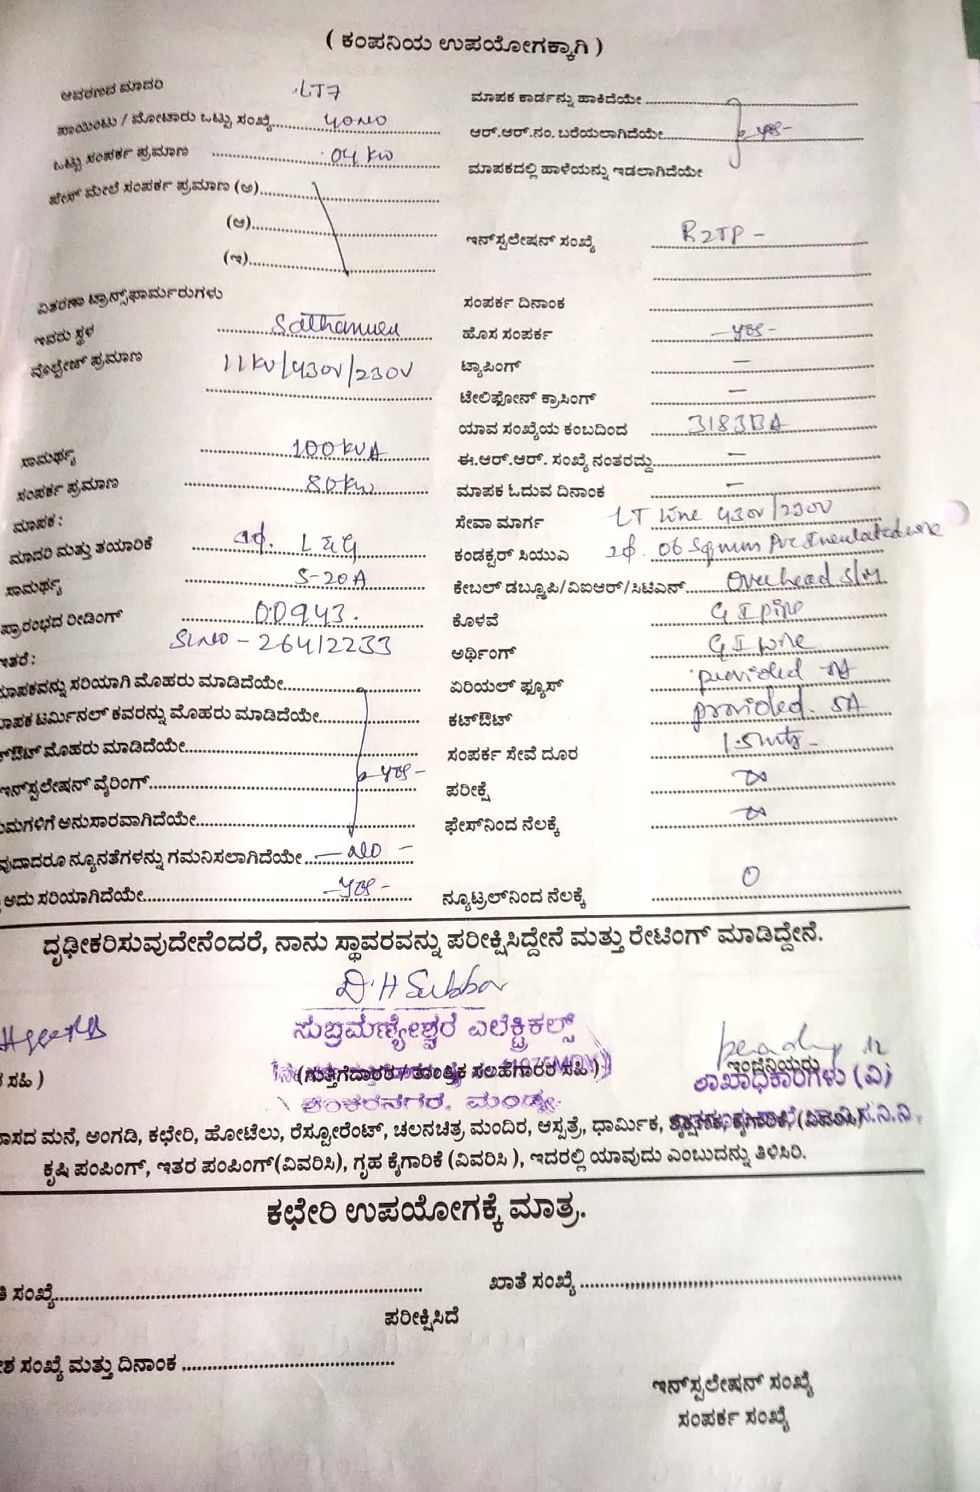 ( ಕಂಪನಿಯ ಉಪಯೋಗಕ್ಕಾಗಿ )
ಆವರಣದ ಮಾದರಿ LT7
ಪಾಯಿಂಟು / ಮೋಟಾರು ಒಟ್ಟು ಸಂಖ್ಯೆ 40NO
ಒಟ್ಟು ಸಂಪರ್ಕ ಪ್ರಮಾಣ 04 KW
ಫೇಸ್ ಮೇಲೆ ಸಂಪರ್ಕ ಪ್ರಮಾಣ (ಅ)
(ಆ)
(ಇ)
ವಿತರಣಾ ಟ್ರಾನ್ಸ್‌ಫಾರ್ಮರುಗಳು
ಇವರು ಸ್ಥಳ
ವೊಲ್ಟೇಜ್ ಪ್ರಮಾಣ 11KV/430V/230V
ಸಾಮರ್ಥ್ಯ 100KVA
ಸಂಪರ್ಕ ಪ್ರಮಾಣ 80KW
ಮಾಪಕ :
ಮಾದರಿ ಮತ್ತು ತಯಾರಿಕೆ L&G
ಸಾಮರ್ಥ್ಯ 5-20A
ಪ್ರಾರಂಭದ ರೀಡಿಂಗ್ 00943.
SLNO - 26412233
ಇತರೆ :
ಮಾಪಕವನ್ನು ಸರಿಯಾಗಿ ಮೊಹರು ಮಾಡಿದೆಯೇ
ಮಾಪಕ ಟರ್ಮಿನಲ್ ಕವರನ್ನು ಮೊಹರು ಮಾಡಿದೆಯೇ
ಕಟ್‌ಔಟ್ ಮೊಹರು ಮಾಡಿದೆಯೇ
ಇನ್‌ಸ್ಟಲೇಷನ್ ವೈರಿಂಗ್ yes -
ನಿಯಮಗಳಿಗೆ ಅನುಸಾರವಾಗಿದೆಯೇ
ಯಾವುದಾದರೂ ನ್ಯೂನತೆಗಳನ್ನು ಗಮನಿಸಲಾಗಿದೆಯೇ - NO -
ಅದು ಸರಿಯಾಗಿದೆಯೇ - yes -
ಮಾಪಕ ಕಾರ್ಡನ್ನು ಹಾಕಿದೆಯೇ
ಆರ್.ಆರ್.ನಂ. ಬರೆಯಲಾಗಿದೆಯೇ yes -
ಮಾಪಕದಲ್ಲಿ ಹಾಳೆಯನ್ನು ಇಡಲಾಗಿದೆಯೇ
ಇನ್‌ಸ್ಟಲೇಷನ್ ಸಂಖ್ಯೆ
ಸಂಪರ್ಕ ದಿನಾಂಕ
ಹೊಸ ಸಂಪರ್ಕ - yes -
ಟ್ಯಾಪಿಂಗ್ -
ಟೇಲಿಫೋನ್ ಕ್ರಾಸಿಂಗ್ -
ಯಾವ ಸಂಖ್ಯೆಯ ಕಂಬದಿಂದ
ಈ.ಆರ್.ಆರ್. ಸಂಖ್ಯೆ ನಂತರದ್ದು -
ಮಾಪಕ ಓದುವ ದಿನಾಂಕ -
ಸೇವಾ ಮಾರ್ಗ LT Line 430V/230V
ಕಂಡಕ್ಟರ್ ಸಿಯುಎ 06 Sqmm Pvc Insulated wire
ಕೇಬಲ್ ಡಬ್ಲೂಪಿ/ವಿಐಆರ್/ಸಿಟಿಎನ್ Overhead S/M
ಕೊಳವೆ G I pipe
ಅರ್ಥಿಂಗ್ G I wire
ಏರಿಯಲ್ ಫ್ಯೂಸ್ provided
ಕಟ್‌ಔಟ್ provided 5A
ಸಂಪರ್ಕ ಸೇವೆ ದೂರ
ಪರೀಕ್ಷೆ
ಫೇಸ್‌ನಿಂದ ನೆಲಕ್ಕೆ
ನ್ಯೂಟ್ರಲ್‌ನಿಂದ ನೆಲಕ್ಕೆ 0
ದೃಢೀಕರಿಸುವುದೇನೆಂದರೆ, ನಾನು ಸ್ಥಾವರವನ್ನು ಪರೀಕ್ಷಿಸಿದ್ದೇನೆ ಮತ್ತು ರೇಟಿಂಗ್ ಮಾಡಿದ್ದೇನೆ.
ಸುಬ್ರಮಣ್ಯೇಶ್ವರ ಎಲೆಕ್ಟ್ರಿಕಲ್ಸ್
ಸಹಿ )
(ಗುತ್ತಿಗೆದಾರರ / ತಾಂತ್ರಿಕ ಸಲಹೆಗಾರರ ಸಹಿ )
ಇಂಜಿನಿಯರು
ಶಾಖಾಧಿಕಾರಿಗಳು (ವಿ)
ಶಂಕರನಗರ, ಮಂಡ್ಯ.
ವಾಸದ ಮನೆ, ಅಂಗಡಿ, ಕಛೇರಿ, ಹೋಟೆಲು, ರೆಸ್ಟೋರೆಂಟ್, ಚಲನಚಿತ್ರ ಮಂದಿರ, ಆಸ್ಪತ್ರೆ, ಧಾರ್ಮಿಕ,
ಕೃಷಿ ಪಂಪಿಂಗ್, ಇತರ ಪಂಪಿಂಗ್(ವಿವರಿಸಿ), ಗೃಹ ಕೈಗಾರಿಕೆ (ವಿವರಿಸಿ ), ಇದರಲ್ಲಿ ಯಾವುದು ಎಂಬುದನ್ನು ತಿಳಿಸಿರಿ.
ಕಛೇರಿ ಉಪಯೋಗಕ್ಕೆ ಮಾತ್ರ.
ಸಂಖ್ಯೆ
ಖಾತೆ ಸಂಖ್ಯೆ
ಪರೀಕ್ಷಿಸಿದೆ
ಸಂಖ್ಯೆ ಮತ್ತು ದಿನಾಂಕ
ಇನ್‌ಸ್ಟಲೇಷನ್ ಸಂಖ್ಯೆ
ಸಂಪರ್ಕ ಸಂಖ್ಯೆ